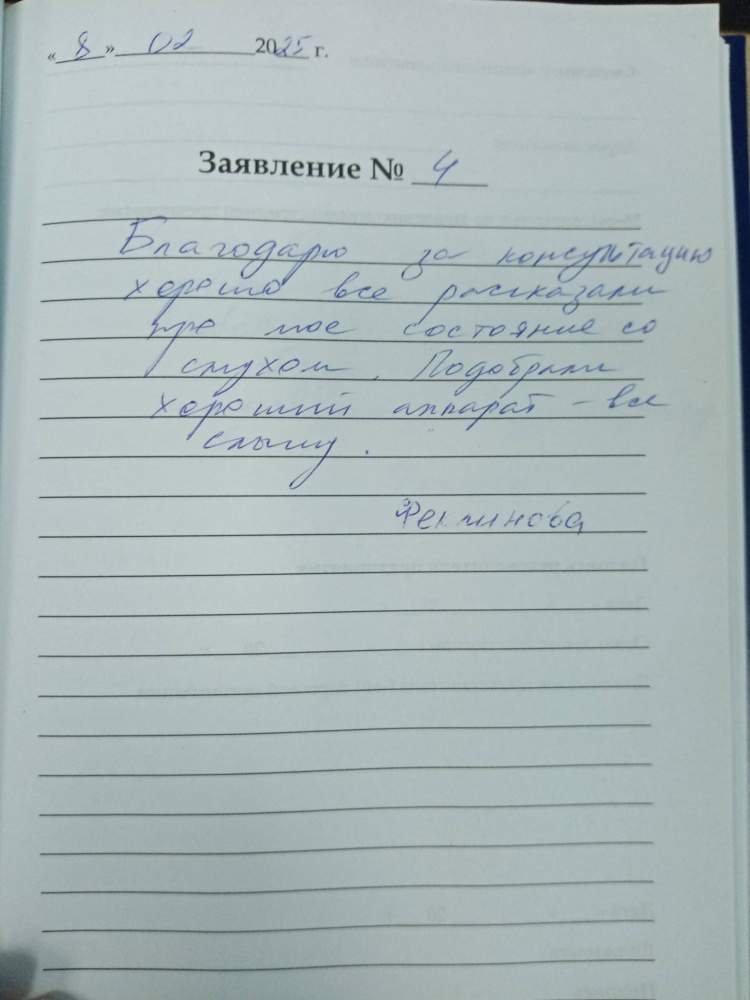 « 8 » 02 2025 г.
Заявление № 4
Благодарю за консультацию
хорошо все рассказали
про мое состояние со
слухом. Подобрали
хороший аппарат – все
слышу.